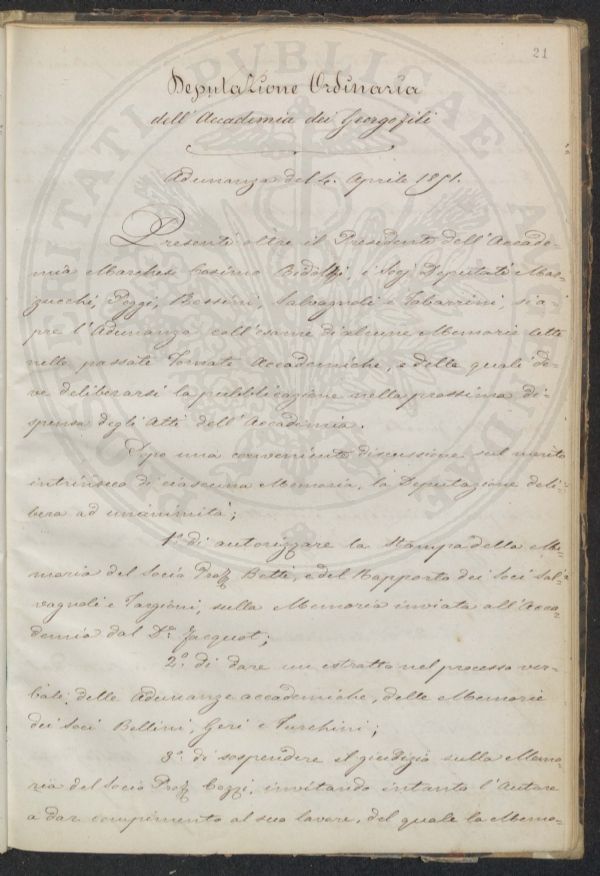 21
Deputazione Ordinaria
dell'Accademia dei Georgofili
Adunanza del 4. Aprile 1851.
Presenti oltre il Presidente dell'Accade-
mia Marchese Cosimo Ridolfi, i Socj Deputati Mar-
zucchi, Poggi, Bessini, Salvagnoli e Tabarrini, si a-
pre l'Adunanza coll'esame di alcune Memorie lette
nelle passate Tornate Accademiche, e delle quali de-
ve deliberarsi la pubblicazione nella prossima di-
spensa degli Atti dell'Accademia.
Dopo una conveniente discussione sul merito
intrinseco di ciascuna Memoria, la Deputazione deli-
bera ad unanimità;
1.º di autorizzare la Stampa della Me-
moria del Socio Prof. Betti, e del Rapporto dei Soci Sal-
vagnoli e Targioni, sulla Memoria inviata all'Acca-
demia dal Dr. Jacquot;
2.º di dare un estratto nel processo ver-
bale, delle Adunanze accademiche, delle Memorie
dei Soci Bellini, Geri e Turchini;
3.º di sospendere il giudizio sulla Memo-
ria del Socio Prof. Cozzi, invitando intanto l'Autore
a dar compimento al suo lavoro, del quale la Memo-
PROSPERITATI PUBLICAE AUGENDAE